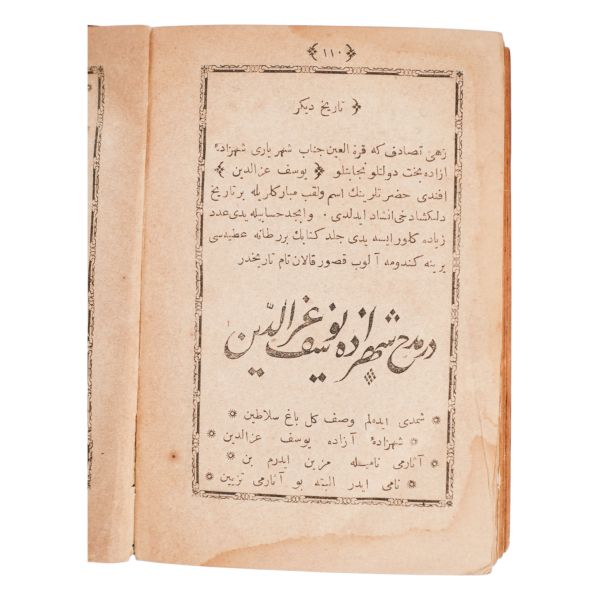 ﴿ ١١٠ ﴾
﴿ تاريخ ديكر
زهى تصادف كه قرة العين جناب شهريارى شهزادۀ
ازاده بخت دولتلو نجابتلو ﴿ يوسف عزالدين ﴾
افندى حضرتلرينك اسم ولقب مباركلريله بر تاريخ
دلكشادخى انشاد ايدلدى . وابجد حسابيله يدى عدد
زياده كلور ايسه يدى جلد كتابك بر طانه عطيه سى
يرينه كندومه آلوب قصور قالان تام تاريخدر
در مدح شهزاده يوسف عزالدين
شمدى ايده لم وصف كل باغ سلاطين
شهزادۀ آزاده يوسف عزالدين
آثارمى ناميله مزين ايدرم بن
نامى ايدر البته بو آثارمى تزيين